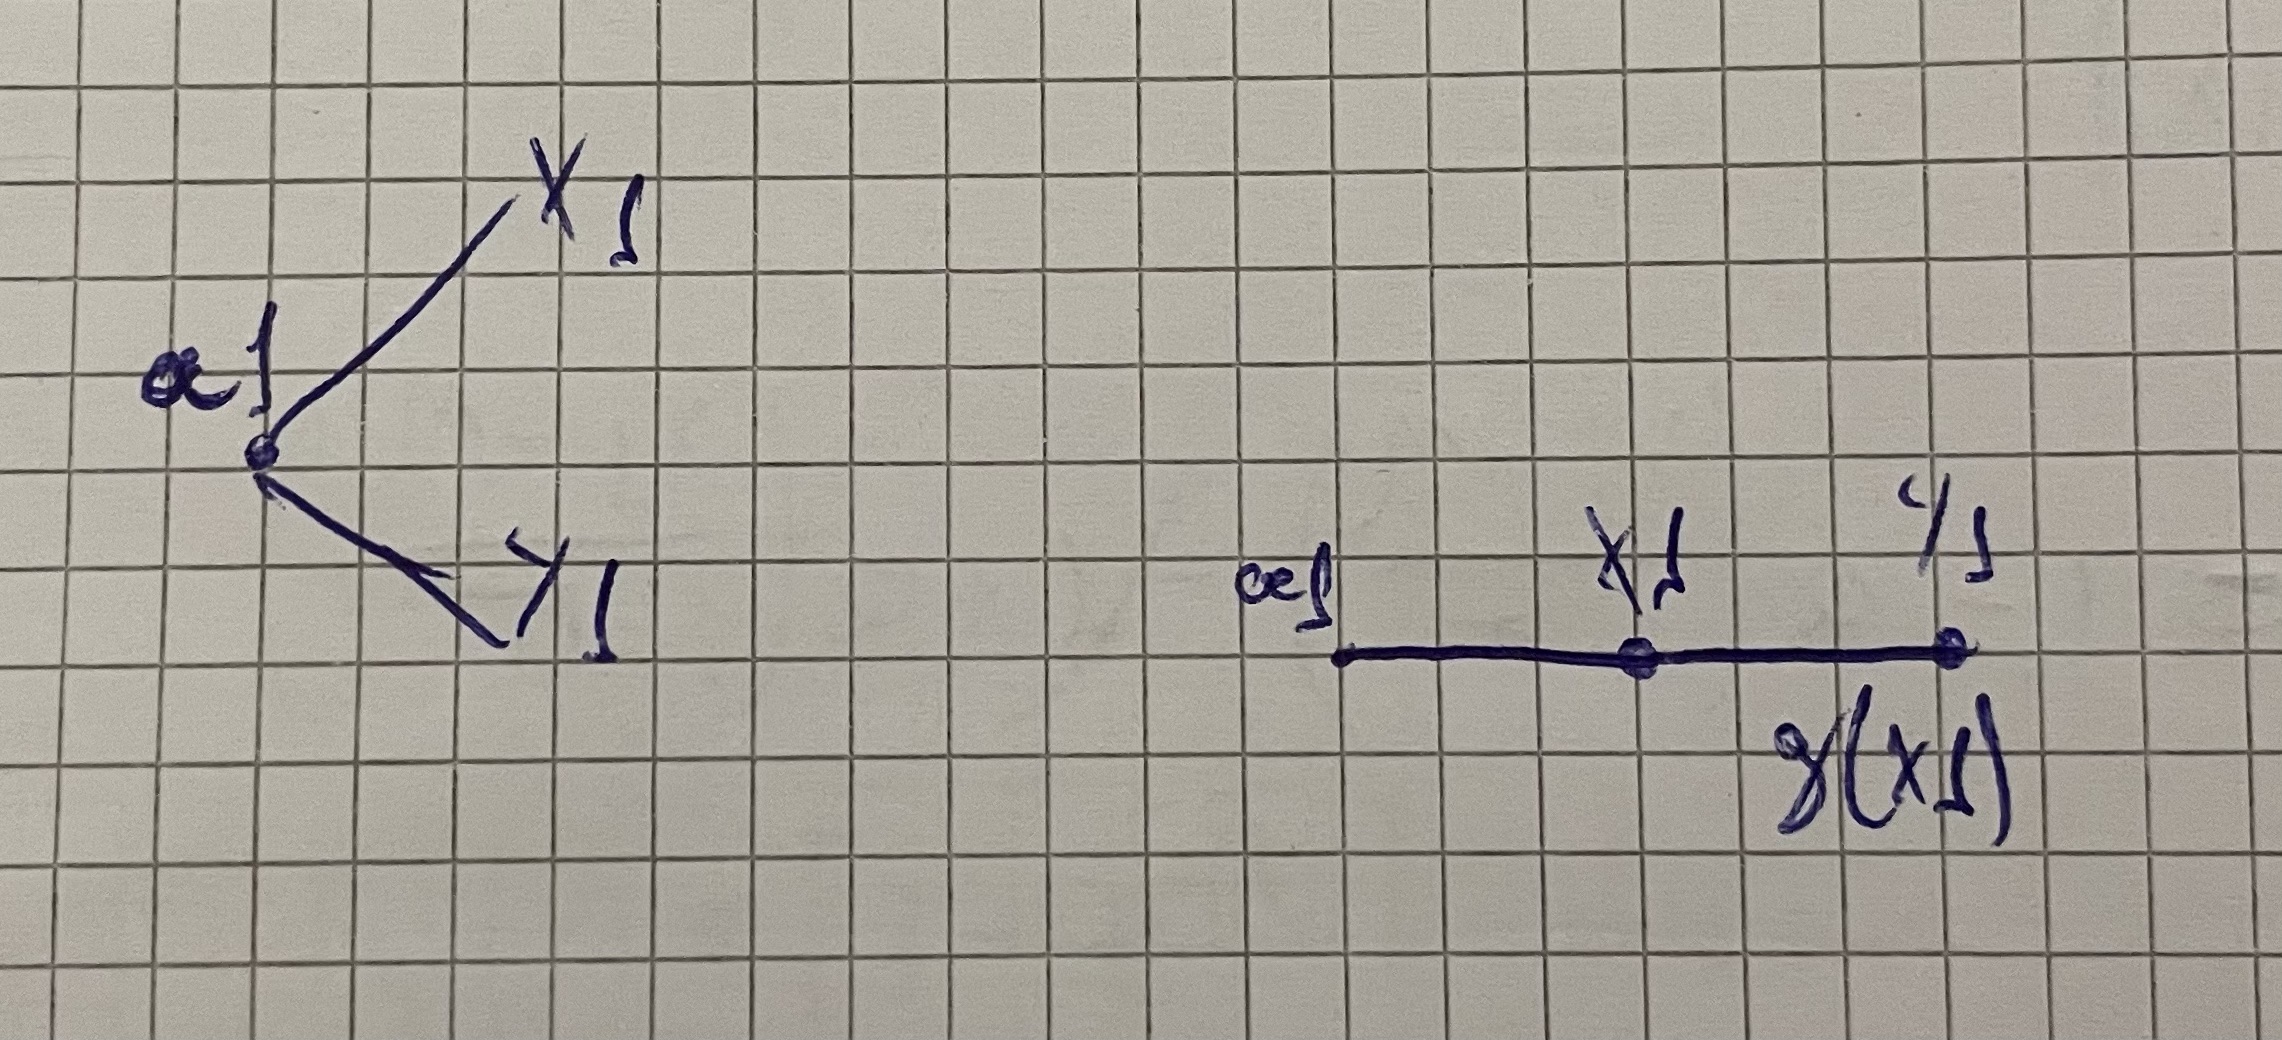 X1
α1
Y1
α1
X1
Y1
g(X1)